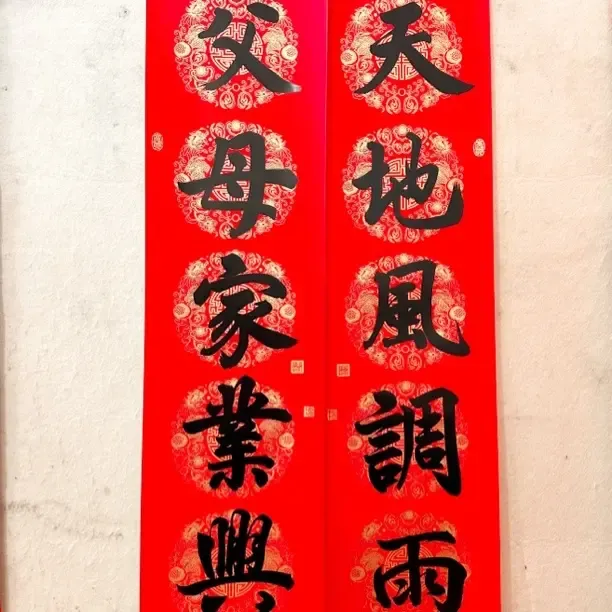 天地風調雨
父母家業興